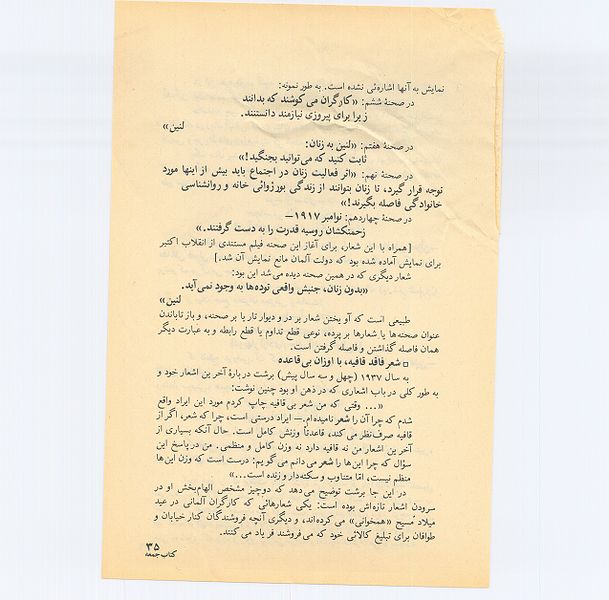 نمایش به آنها اشاره‌ئی نشده است. به طور نمونه:
در صحنهٔ ششم: «کارگران می‌کوشند که بدانند
زیرا برای پیروزی نیازمند دانستنند.
لنین»
در صحنهٔ هفتم: «لنین به زنان:
ثابت کنید که می‌توانید بجنگید!»
در صحنهٔ نهم: «اثر فعالیت زنان در اجتماع باید بیش از اینها مورد
توجه قرار گیرد، تا زنان بتوانند از زندگی بورژوائی خانه و روانشناسی
خانوادگی فاصله بگیرند!»
در صحنهٔ چهاردهم: نوامبر ۱۹۱۷–
زحمتکشان روسیه قدرت را به دست گرفتند.»
[همراه با این شعار، برای آغاز این صحنه فیلم مستندی از انقلاب اکتبر
برای نمایش آماده شده بود که دولت آلمان مانع نمایش آن شد.]
شعار دیگری که در همین صحنه دیده می‌شد این بود:
«بدون زنان، جنبش واقعی توده‌ها به وجود نمی‌آید.
لنین»
طبیعی است که آویختن شعار بر در و دیوار تار یا بر صحنه، و باز تاباندن
عنوان صحنه‌ها یا شعارها بر پرده، نوعی قطع تداوم یا قطع رابطه و به عبارت دیگر
همان فاصله گذاشتن و فاصله گرفتن است.
□ شعر فاقد قافیه، با اوزان بی‌قاعده
به سال ۱۹۳۷ (چهل و سه سال پیش) برشت در بارهٔ آخرین اشعار خود و
به طور کلی در باب اشعاری که در ذهن او بود چنین نوشت:
«... وقتی که من شعر بی‌قافیه چاپ کردم مورد این ایراد واقع
شدم که چرا آن را شعر نامیده‌ام.– ایراد درستی است، چرا که شعر، اگر از
قافیه صرف‌نظر می‌کند، قاعدتاً وزنش کامل است. حال آنکه بسیاری از
آخرین اشعار من نه قافیه دارد نه وزن کامل و منظمی. من در پاسخ این
سؤال که چرا این‌ها را شعر می‌دانم می‌گویم: درست است که وزن این‌ها
منظم نیست، امّا متناوب و سکته‌دار و زنده است...»
در این جا برشت توضیح می‌دهد که دوچیز مشخص الهام‌بخش او در
سرودن اشعار تازه‌اش بوده است: یکی شعارهائی که کارگران آلمانی در عید
میلاد مسیح «همخوانی» می‌کرده‌اند، و دیگری آنچه فروشندگان کنار خیابان و
طوافان برای تبلیغ کالائی خود که می‌فروشند فریاد می‌کنند.
۳۵
کتاب جمعه